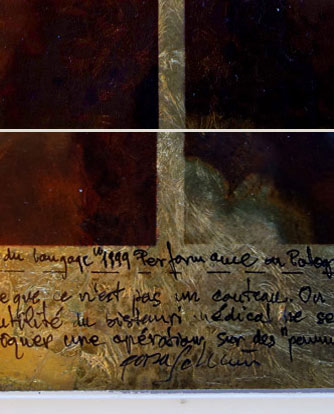 du langage 1999 Performance ou Patog
que ce n'est pas un couteau. On
utilité du bistouri médical ne se
oquer une opération sur des "pommi